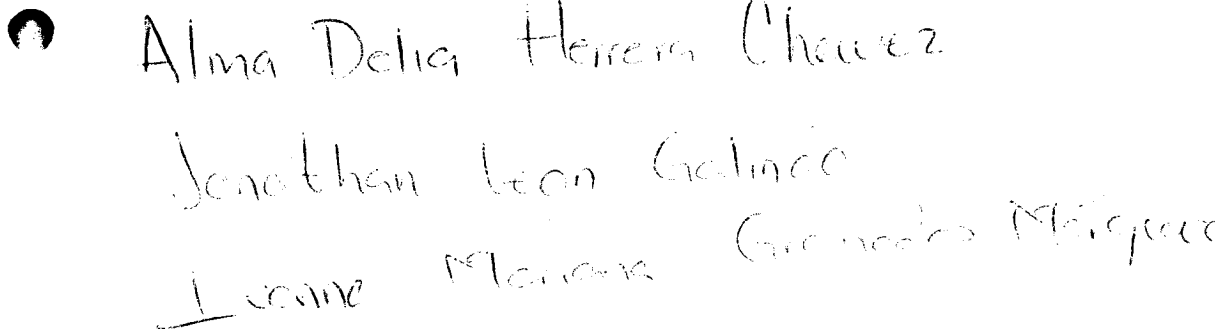 Alma Delia Herrera Chavez
Jonathan Leon Galindo
Ivonne Mariana Granados Márquez